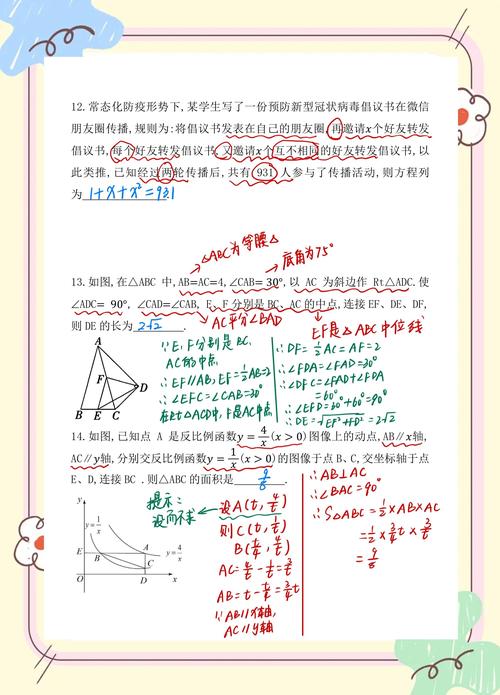 12. 常态化防疫形势下,某学生写了一份预防新型冠状病毒倡议书在微信
朋友圈传播,规则为:将倡议书发表在自己的朋友圈,再邀请x个好友转发
倡议书,每个好友转发倡议书,又邀请x个互不相同的好友转发倡议书,以
此类推,已知经过两轮传播后,共有 931 人参与了传播活动,则方程列
为 1+x+x²=931
△ABC为等腰△
底角为75°
13. 如图,在△ABC 中,AB=AC=4,∠CAB= 30°,以 AC 为斜边作 Rt△ADC.使
∠ADC= 90°, ∠CAD=∠CAB, E、F分别是BC、AC的中点,连接EF、DE、DF,
则 DE 的长为 2√2 .
AC平分∠BAD
EF是△ABC中位线
∵E,F分别是BC,
AC的中点
∴EF∥AB,EF=1/2AB=2
∴∠EFC=∠CAB=30°
在Rt△ACD中,F是AC中点
∴DF=1/2AC=AF=2
∴∠FDA=∠FAD=30°
∴∠DFC=∠FAD+∠FDA
=60°
∴∠EFD=30°+60°=90°
∴DE=√EF²+FD²=2√2
A
F
D
B
E
C
14. 如图,已知点 A 是反比例函数y=4/x(x>0)图像上的动点,AB∥x轴,
AC∥y轴,分别交反比例函数y=1/x(x>0)的图像于点 B、C,交坐标轴于点
E、D,连接 BC .则△ABC 的面积是 9/8 .
提示:
设而不求
设A(t,4/t)
则C(t,1/t)
B(t/4,4/t)
AC=4/t-1/t=3/t
AB=t-t/4=3/4t
∵AB∥x轴,
AC∥y轴
∴AB⊥AC
∴∠BAC=90°
∴S△ABC=1/2×AB×AC
=1/2×3/4t×3/t
=9/8
y
y=1/x
E
B
A
y=4/x
C
O
D
x